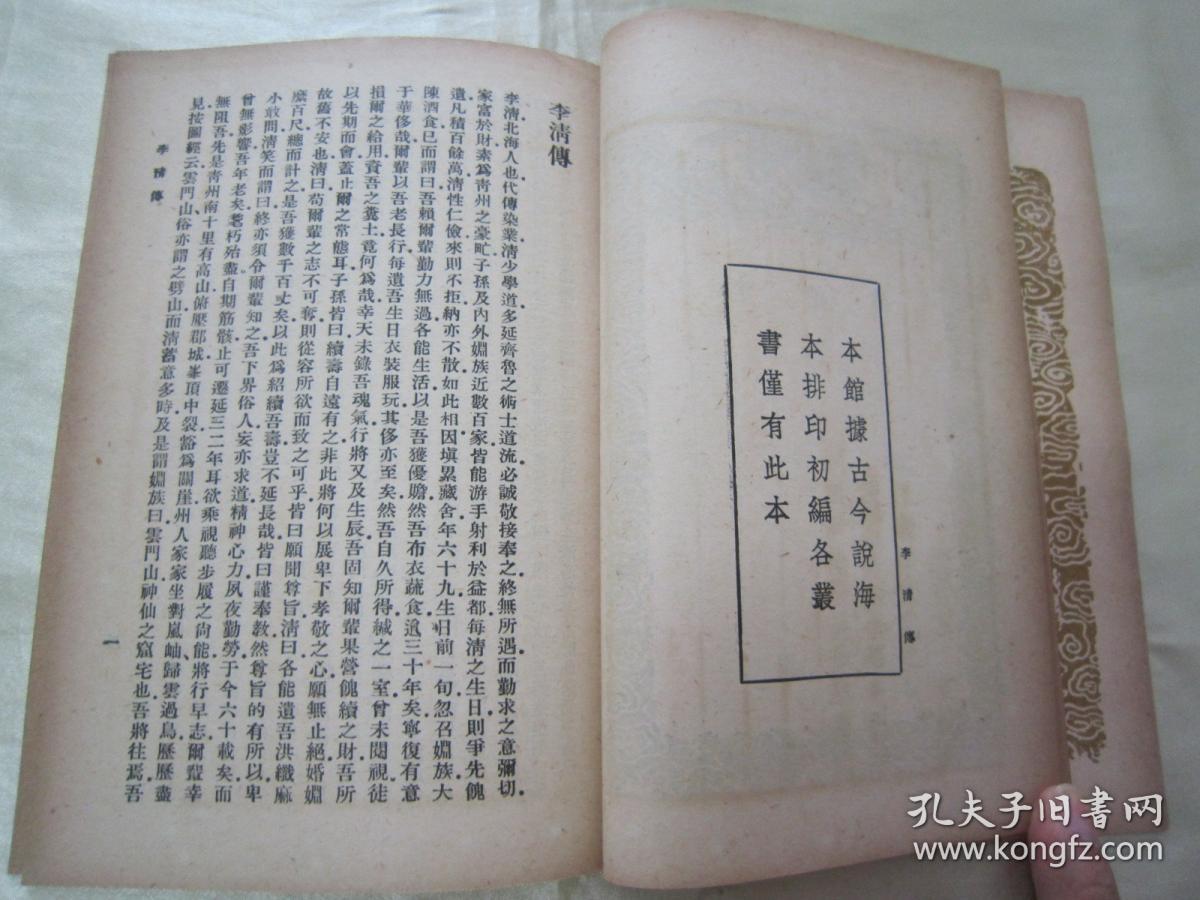 本館據古今說海
本排印初編各叢
書僅有此本
李清傳
李清傳
李清北海人也代傳染業清少學道多延齊魯之術士道流必誠敬接奉之終無所遇而勤求之意彌切
家富於財素爲青州之豪甿子孫及內外姻族近數百家皆能游手射利於益都每清之生日則爭先餽
遺凡積百餘萬清性仁儉來則不拒納亦不散如此相因塡累藏舍年六十九生日前一旬忽召姻族大
陳酒食已而謂曰吾賴爾輩勤力無過各能生活以是吾獲優贍然吾布衣蔬食逾三十年矣寧復有意
于華侈哉爾輩以吾老長行每遺吾生日衣裝服玩其侈亦至矣然吾自久所得緘之一室曾未閱視徒
損爾之給用資吾之糞土竟何爲哉幸天未錄吾魂氣行將又及生辰吾固知爾輩果營餽續之財吾所
以先期而會蓋止爾之常態耳子孫皆曰續壽自遠有之非此將何以展卑下孝敬之心願無止絕婚姻
故舊不安也清曰苟爾輩之志不可奪則從容所欲而致之可乎皆曰願聞尊旨清曰各能遺吾洪纖麻
縻百尺總而計之是吾獲數千百丈矣以此爲紹續吾壽豈不延長哉皆曰謹奉教然尊旨的有所以卑
小敢問清笑而謂曰終亦須令爾輩知之吾下界俗人妄亦求道精神心力夙夜勤勞于今六十載矣而
曾無影響吾年老矣耄朽殆盡自期筋骸止可遷延三二年耳欲乘視聽步履之尚能將行早志爾輩幸
無阻吾先是青州南十里有高山俯壓郡城峯頂中裂豁爲關崖州人家家坐對嵐岫歸雲過鳥歷歷盡
見按圖經云雲門山俗亦謂之劈山而清蓄意多時及是謂姻族曰雲門山神仙之窟宅也吾將往焉吾
李清傳
一
孔夫子旧书网
www.kongfz.com